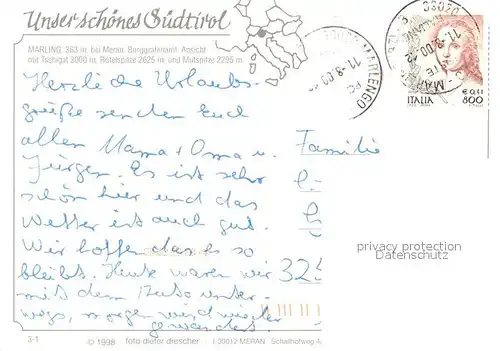 Unser schönes Südtirol
MARLING, 363 m, bei Meran, Burggrafenamt, Ansicht
mit Tschigat 3000 m, Rötelspitze 2625 m und Mutspitze 2295 m
Herzliche Urlaubs-
grüße senden Euch
allen Mama + Oma u.
Jürgen. Es ist sehr
schön hier und das
Wetter ist auch gut.
Wir hoffen das es so
bleibt. Heute waren wir
mit dem Auto unter-
wegs, morgen wird wieder
gewandert.
3-1
© 1998 foto dieter drescher I-39012 MERAN
MARLENGO
11-8-00
11-8-00-12
ITALIA
€ 0,41
800
Familie
325
privacy protection
Datenschutz